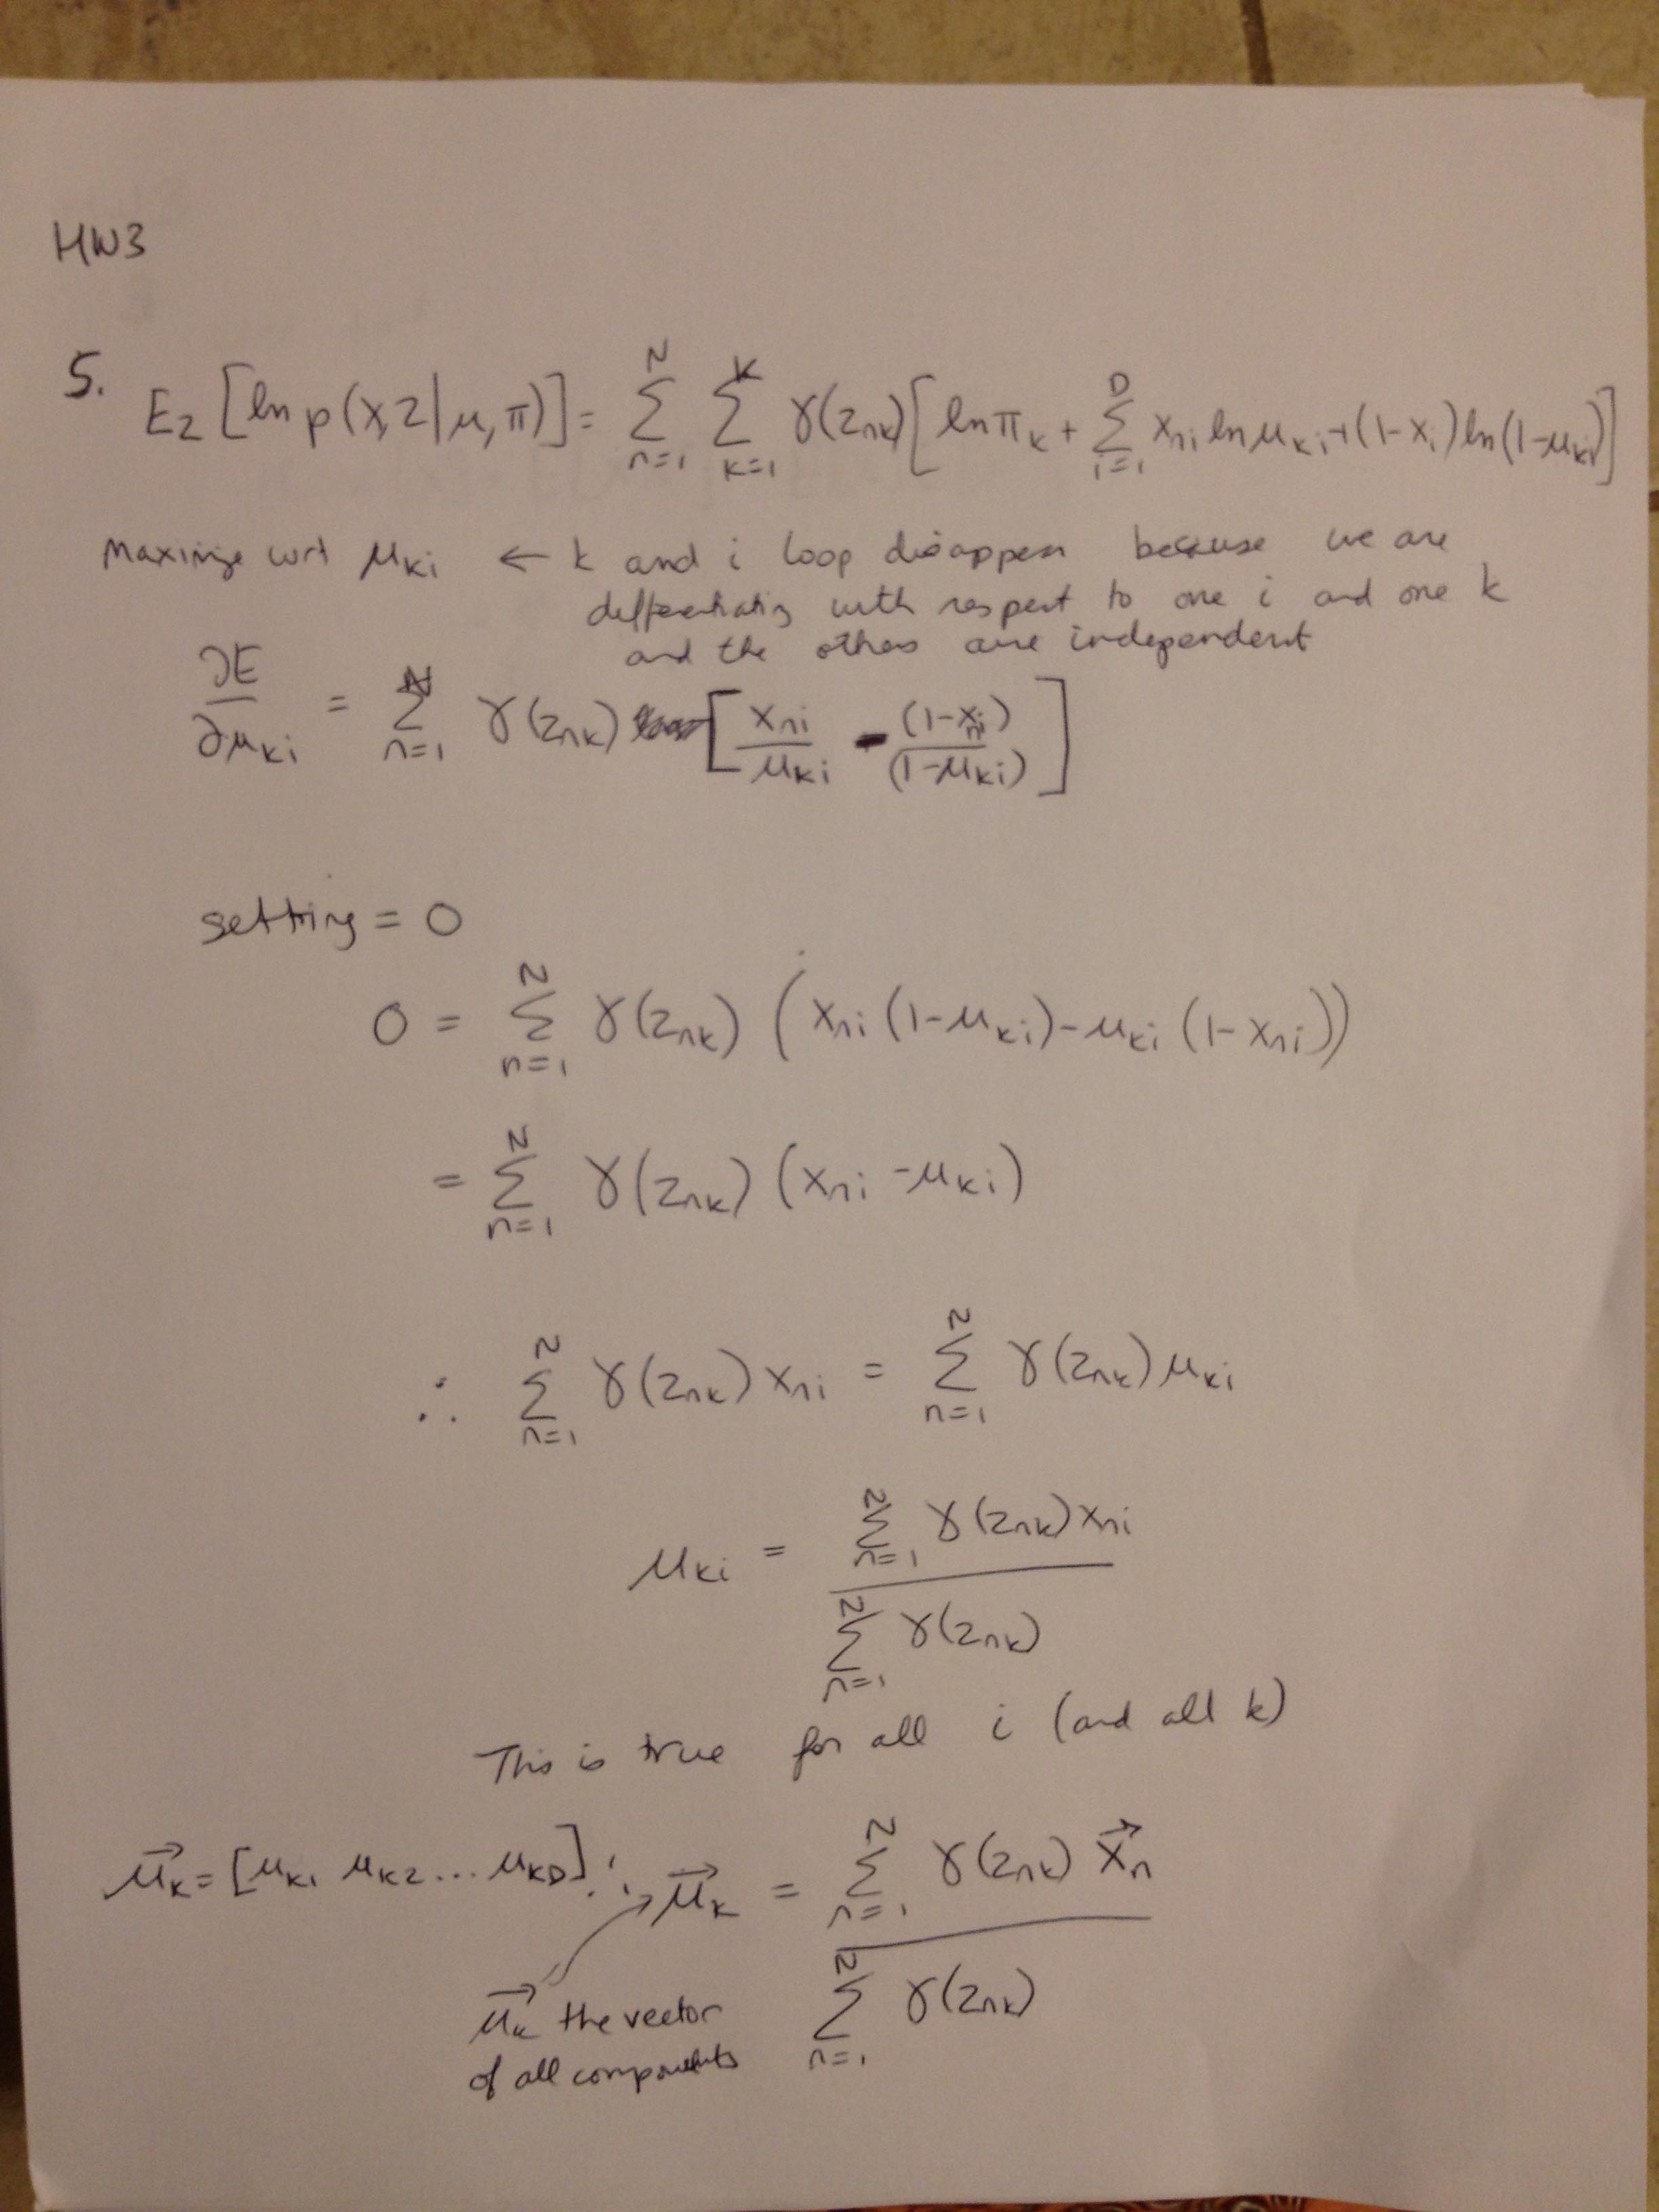 HW3
5. E_Z [ln p(x,z|μ,π)] = Σ_{n=1}^{N} Σ_{k=1}^{K} γ(z_{nk}) [ln π_k + Σ_{i=1}^{D} x_{ni} ln μ_{ki} + (1-x_i) ln(1-μ_{ki})]
Maximize wrt μ_{ki} ← k and i loop disappear because we are
differentiating with respect to one i and one k
and the others are independent
∂E/∂μ_{ki} = Σ_{n=1}^{N} γ(z_{nk}) [x_{ni}/μ_{ki} - (1-x_{ni})/(1-μ_{ki})]
setting = 0
0 = Σ_{n=1}^{N} γ(z_{nk}) (x_{ni}(1-μ_{ki}) - μ_{ki}(1-x_{ni}))
= Σ_{n=1}^{N} γ(z_{nk}) (x_{ni} - μ_{ki})
∴ Σ_{n=1}^{N} γ(z_{nk}) x_{ni} = Σ_{n=1}^{N} γ(z_{nk}) μ_{ki}
μ_{ki} = Σ_{n=1}^{N} γ(z_{nk}) x_{ni} / Σ_{n=1}^{N} γ(z_{nk})
This is true for all i (and all k)
μ⃗_k = [μ_{k1} μ_{k2} ... μ_{kD}] ∴ μ⃗_k = Σ_{n=1}^{N} γ(z_{nk}) x⃗_n / Σ_{n=1}^{N} γ(z_{nk})
μ⃗_k the vector
of all components